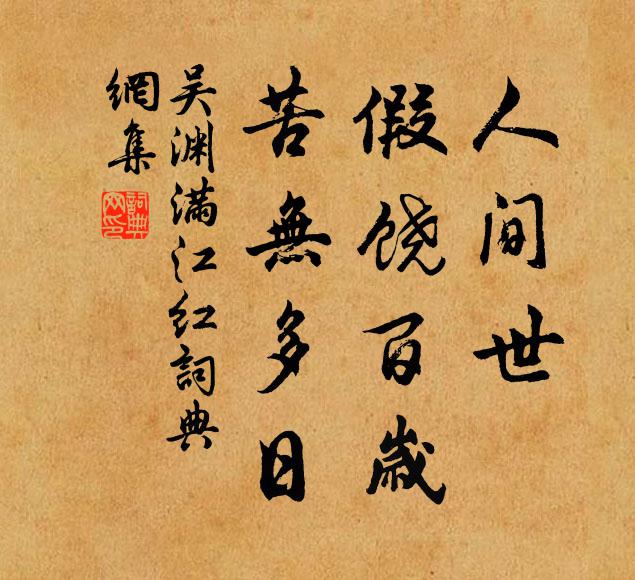 人间世
假饶百歲
苦無多日
吴渊满江红詞典
網集
詞典
网印